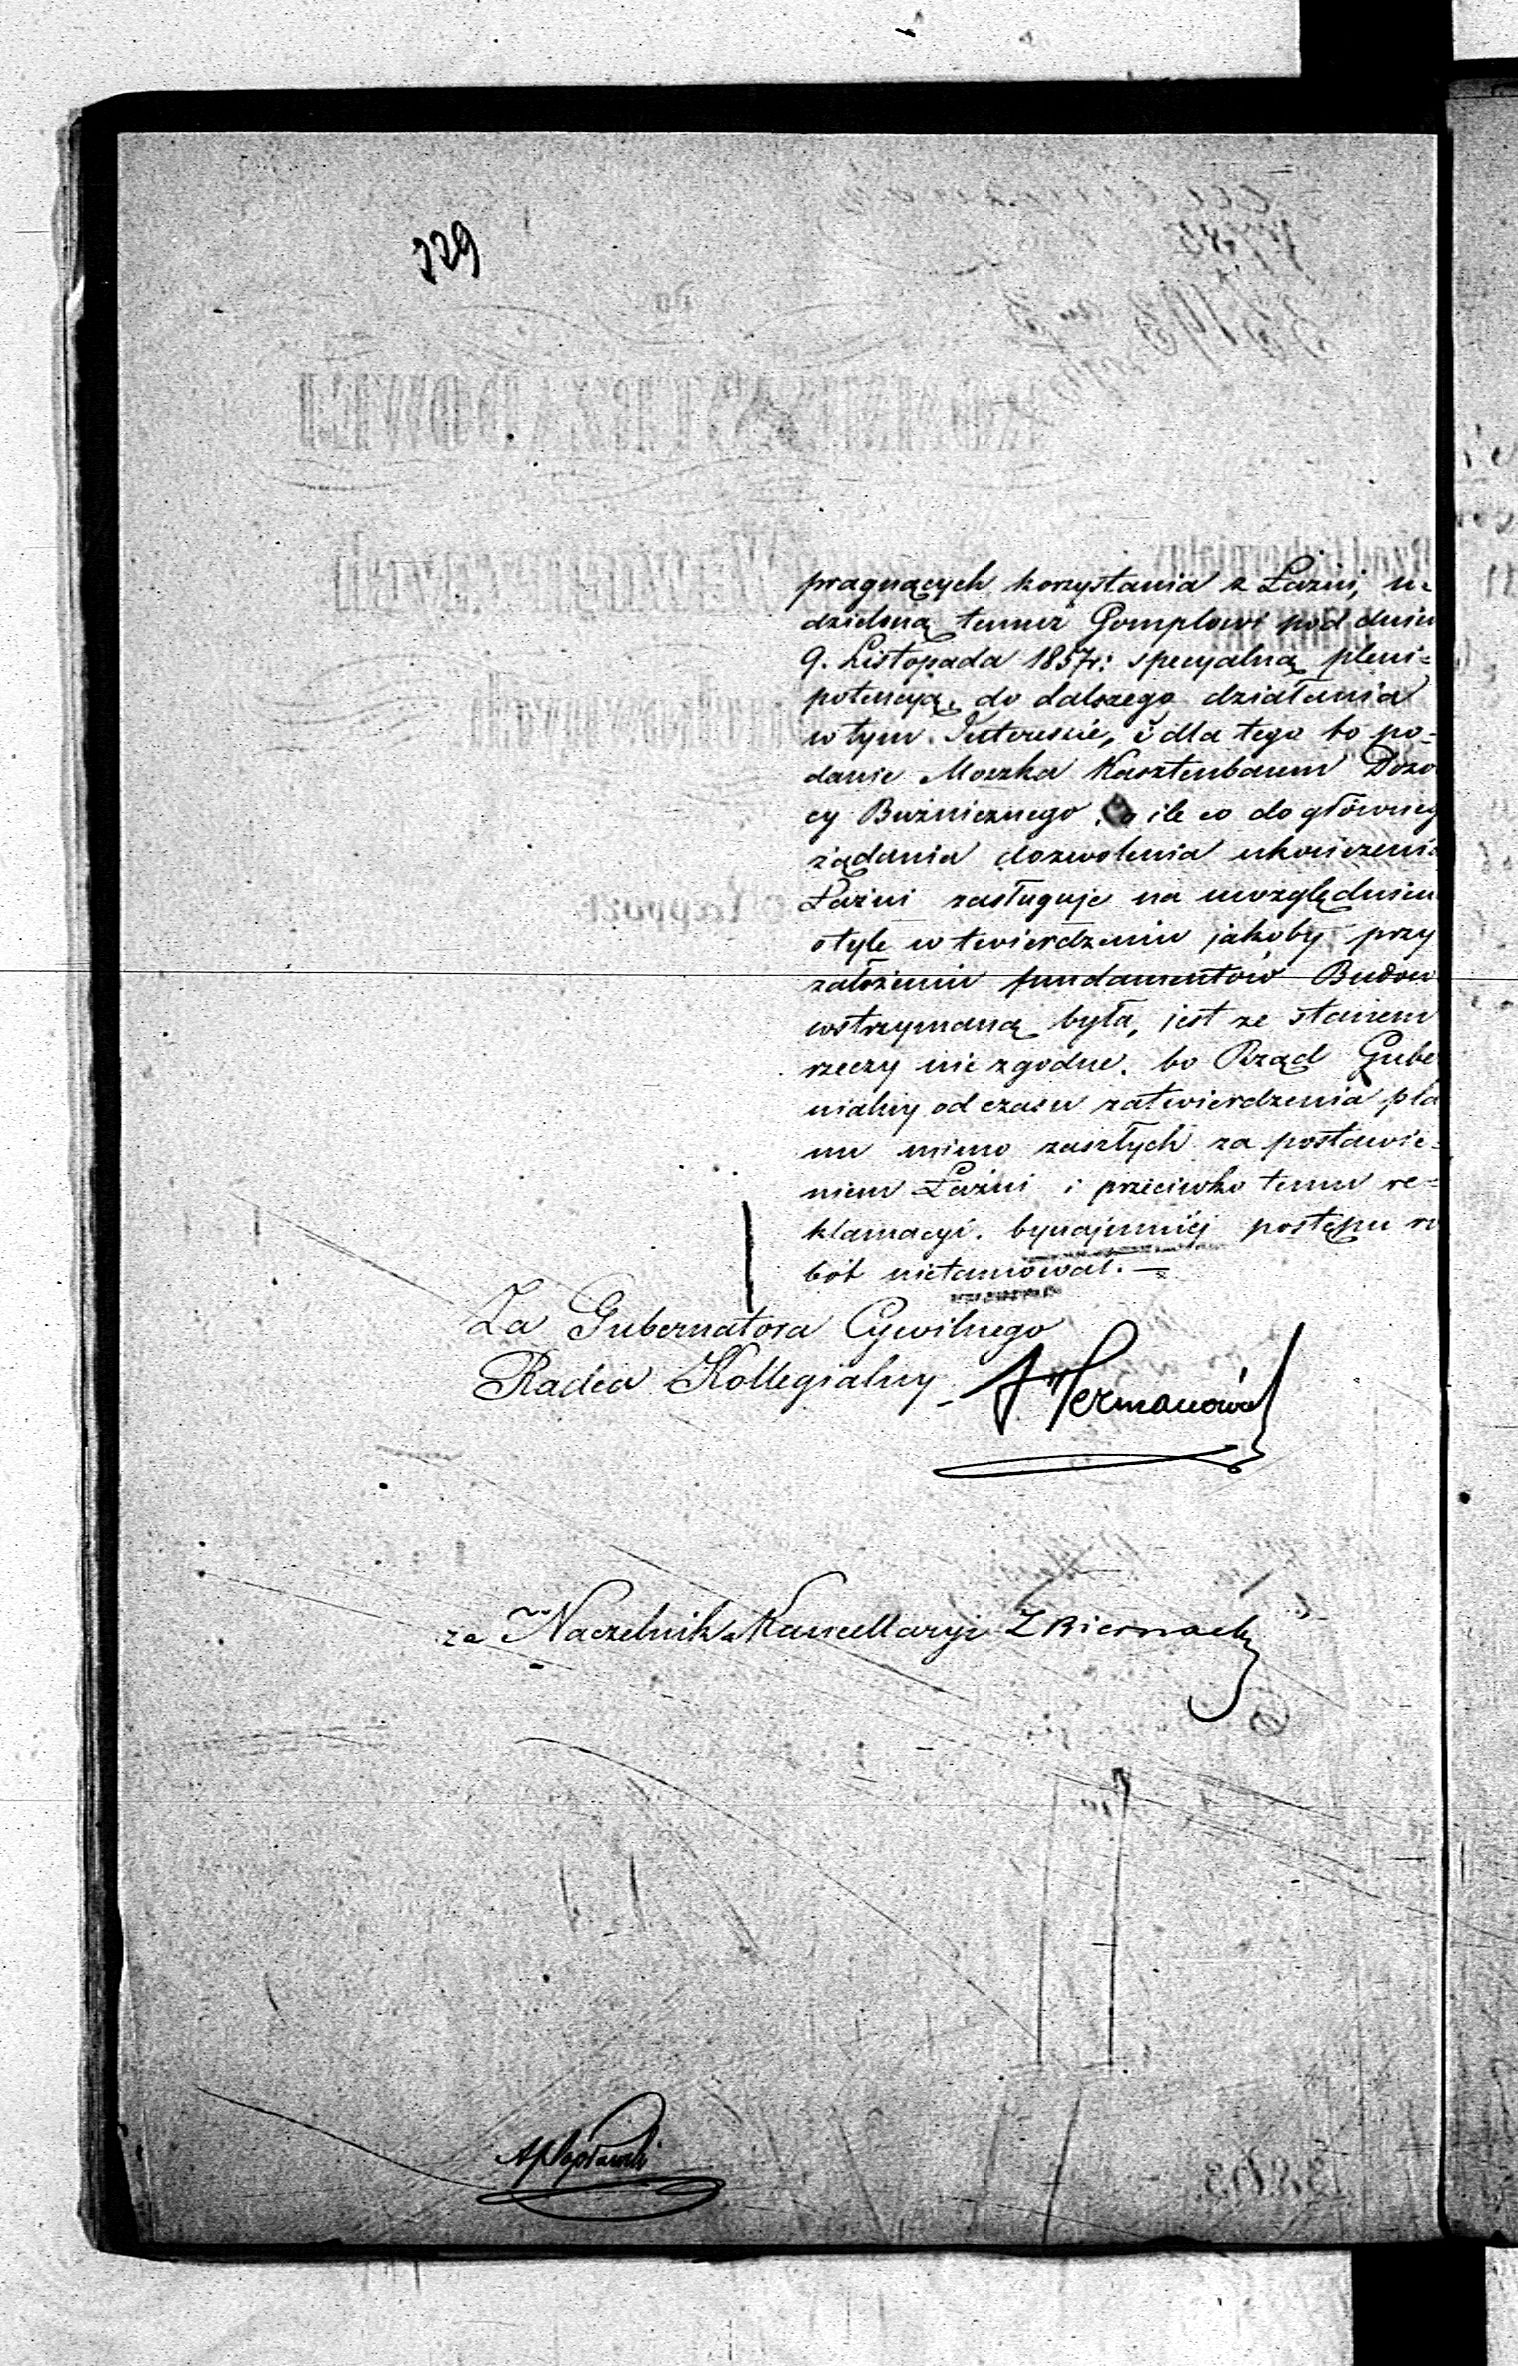 229
pragnących korzystania z Łazni, u=
dzieloną temuż Gomplowi pod dniem
9. Listopada 1857 r: specyalną pleni=
potencyą, do dalszego działania
w tym Interesie, i dla tego to po=
danie Moszka Kasztenbaum Dozo
cy Bużnicznego, o ile co do głównég
żądania dozwolenia ukończenia
Łaźni zasługuje na uwzględnien
o tyle w twierdzeniu jakoby przy
założeniu fundamentów Budow
wstrzymaną była, jest ze stanem
rzeczy nie zgodne, bo Rząd Guber
nialny od czasu zatwierdzenia pla
nu mimo zaszłych za postawie=
niem Łaźni i przeciwko temu re=
klamacyi, bynajmniéj postępu ro
bót nietamował. =
Za Gubernatora Cywilnego
Radca Kollegialny Hermanów
za Naczelnika Kancellaryi Z Biernacki